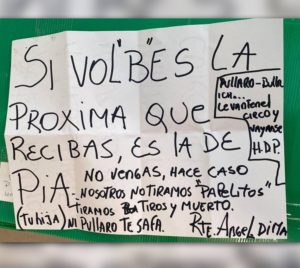 SI VOL"B"ES LA
PROXIMA QUE
RECIBAS, ES LA DE
PIA.
(TU HIJA)
PULLARO-
ICH...
LEVANTEN EL
CIRCO Y
VAYANSE
H.D.P.
NO VENGAS, HACE CASO
NOSOTROS NO TIRAMOS "PAPELITOS"
TIRAMOS TIROS Y MUERTO.
NI PULLARO TE SAFA.
RTE. ANGEL DIMA